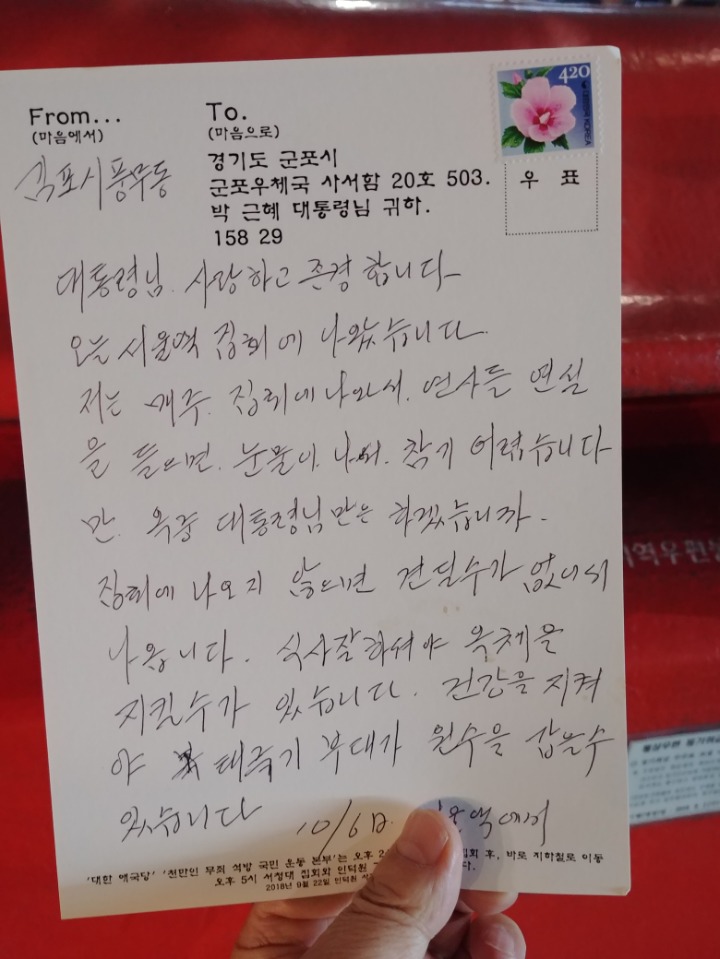 From...
(마음에서)
김포시풍무동
To.
(마음으로)
경기도 군포시
군포우체국 사서함 20호 503.
박 근혜 대통령님 귀하.
158 29
420
KOREA
우 표
대통령님. 사랑하고 존경합니다
오늘 서울역 집회에 나왔습니다.
저는 매주. 집회에 나와서. 연사들 연설
을 들으면. 눈물이. 나서. 참기 어렵습니다
만. 옥중 대통령님만은 하겠습니까.
집회에 나오지 않으면 견딜수가 없어서
나옵니다. 식사잘하셔야 옥체을
지킬수가 있습니다. 건강을 지켜
야 태극기 부대가 원수을 갑을수
있습니다 10/6日. 역에서
'대한 애국당' '천만인 무죄 석방 국민 운동 본부'는 오후 집회 후, 바로 지하철로 이동
오후 5시 서청대 집회와 인덕원 다.
2018년 9월 22일 인덕원